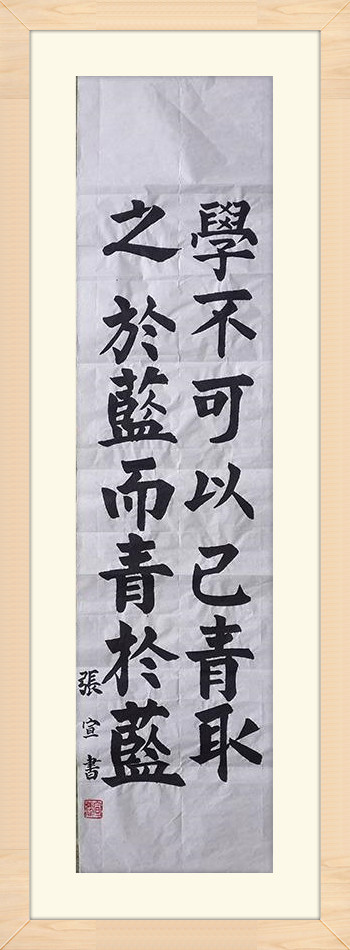 學不可以已青取
之於藍而青於藍
張宣書